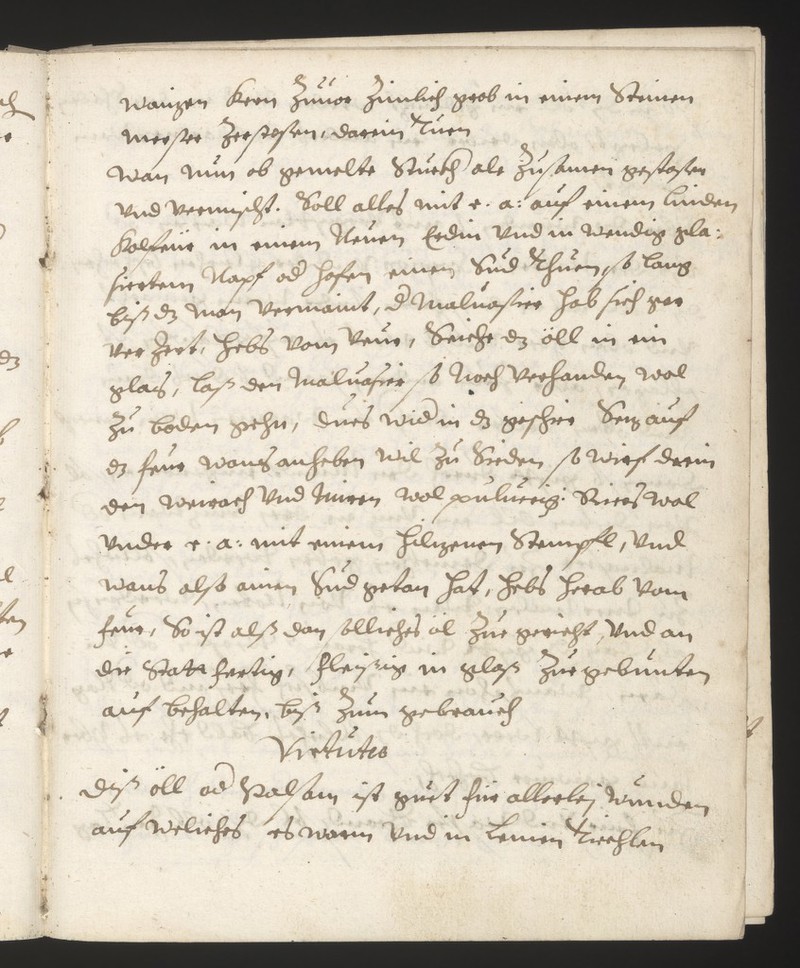 waizen kern zuuor zimlich grob in einem Steinen
merser zerstosen, darein Tuen
Wan nun ob gemelte Stuckh ale zusamen gestosen
vnd vermischt. Soll alles mit e. a: auf einem linden
kolfeür in einem Neuen Erdin vnd in wendig gla:
siertem Napf od hafen einen Sud Thuen, so lang
biß dz man vermaint, d Maluasier hab sich gar
ver zert, hebs vom feur, Seiche dz öll in ein
glas, laß den maluasier so noch verhanden wol
zu boden gehn, dues wid in dz geschir Sez auf
dz feur wans anheben wil zu Sieden so wirf drein
den weirach vnd mirren wol puluerig: Rieers wol
vnder e. a: mit einem hilzenen Stempfl, vnd
wans also ainen Sud getan hat, hebs herab vom
feur, So ist alß dan solliches öl zue gericht, vnd an
die statt fertig, fleissig in glaß zue gebunten
auf behalten, biß zum gebrauch
Virtutes
diß öll od Balsam ist guet für allerley wunden
auf weliches es warm vnd in Leinen Tiechlen